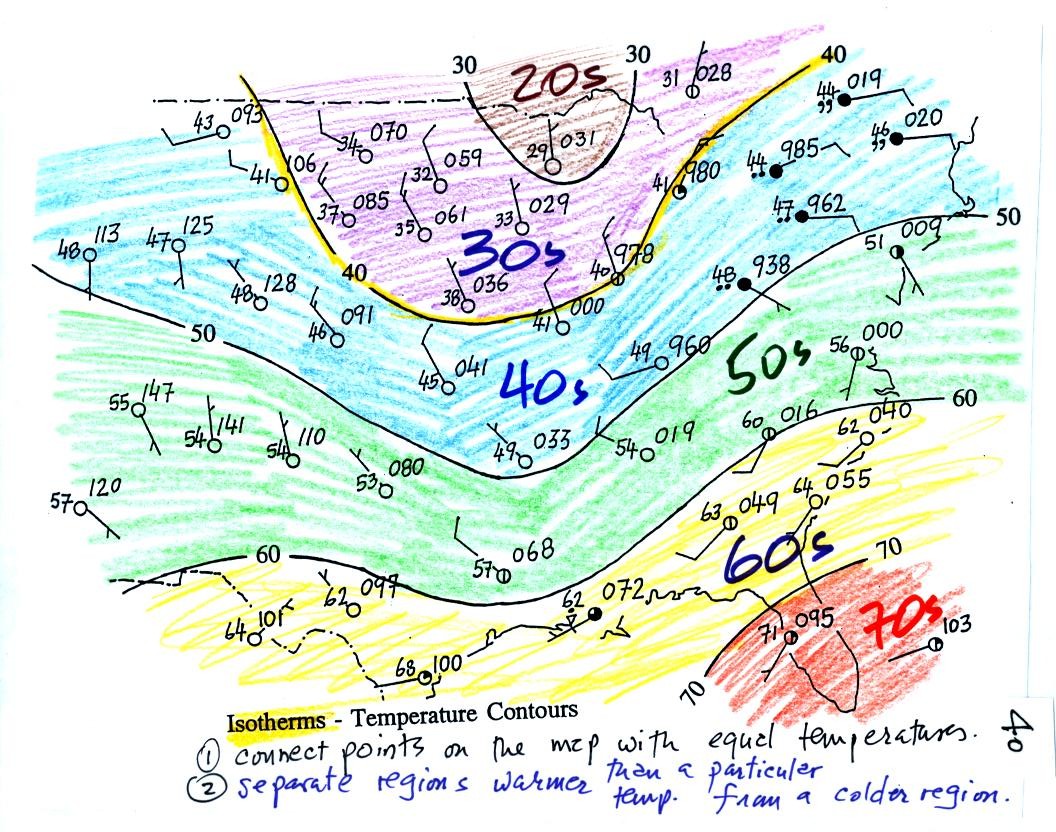 30 30 40
20s
31 028
44 019
43 093
34 070
29 031
46 020
41 106
32 059
41 980
44 985
37 085
35 061
33 029
47 962
50
48 113
47 125
30s
40 978
51 009
40
48 128
38 036
48 938
46 091
41 000
50
45 041
40s
49 960
50s
56 000
55 147
54 141
54 110
49 033
54 019
60 016
62 040
60
57 120
53 080
63 049
64 055
60
57 068
60s
70
62 097
62 072
64 101
71 095
70s
103
68 100
70
Isotherms - Temperature Contours
① connect points on the map with equal temperatures.
② separate regions warmer than a particular
temp. from a colder region.
40